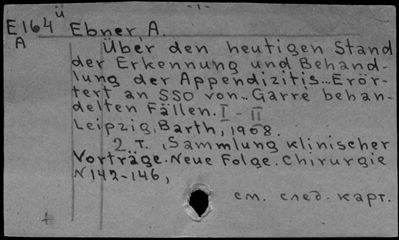 - 1 -
ü
E164 Ebner, A.
A
Über den heutigen Stand
der Erkennung und Behand-
lung der Appendizitis... Erör-
tert an 550 von... Garrè behan-
delten Fällen. I - II
Leipzig, Barth, 1908.
2 T. (Sammlung klinischer
Vorträge. Neue Folge. Chirurgie
N 142-146)
см. след. карт.